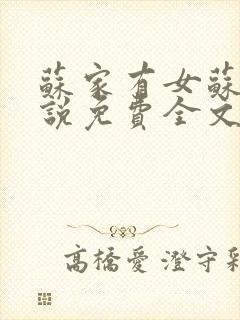 蘇家有女蘇
說免費全文
高橋愛 澄守彩